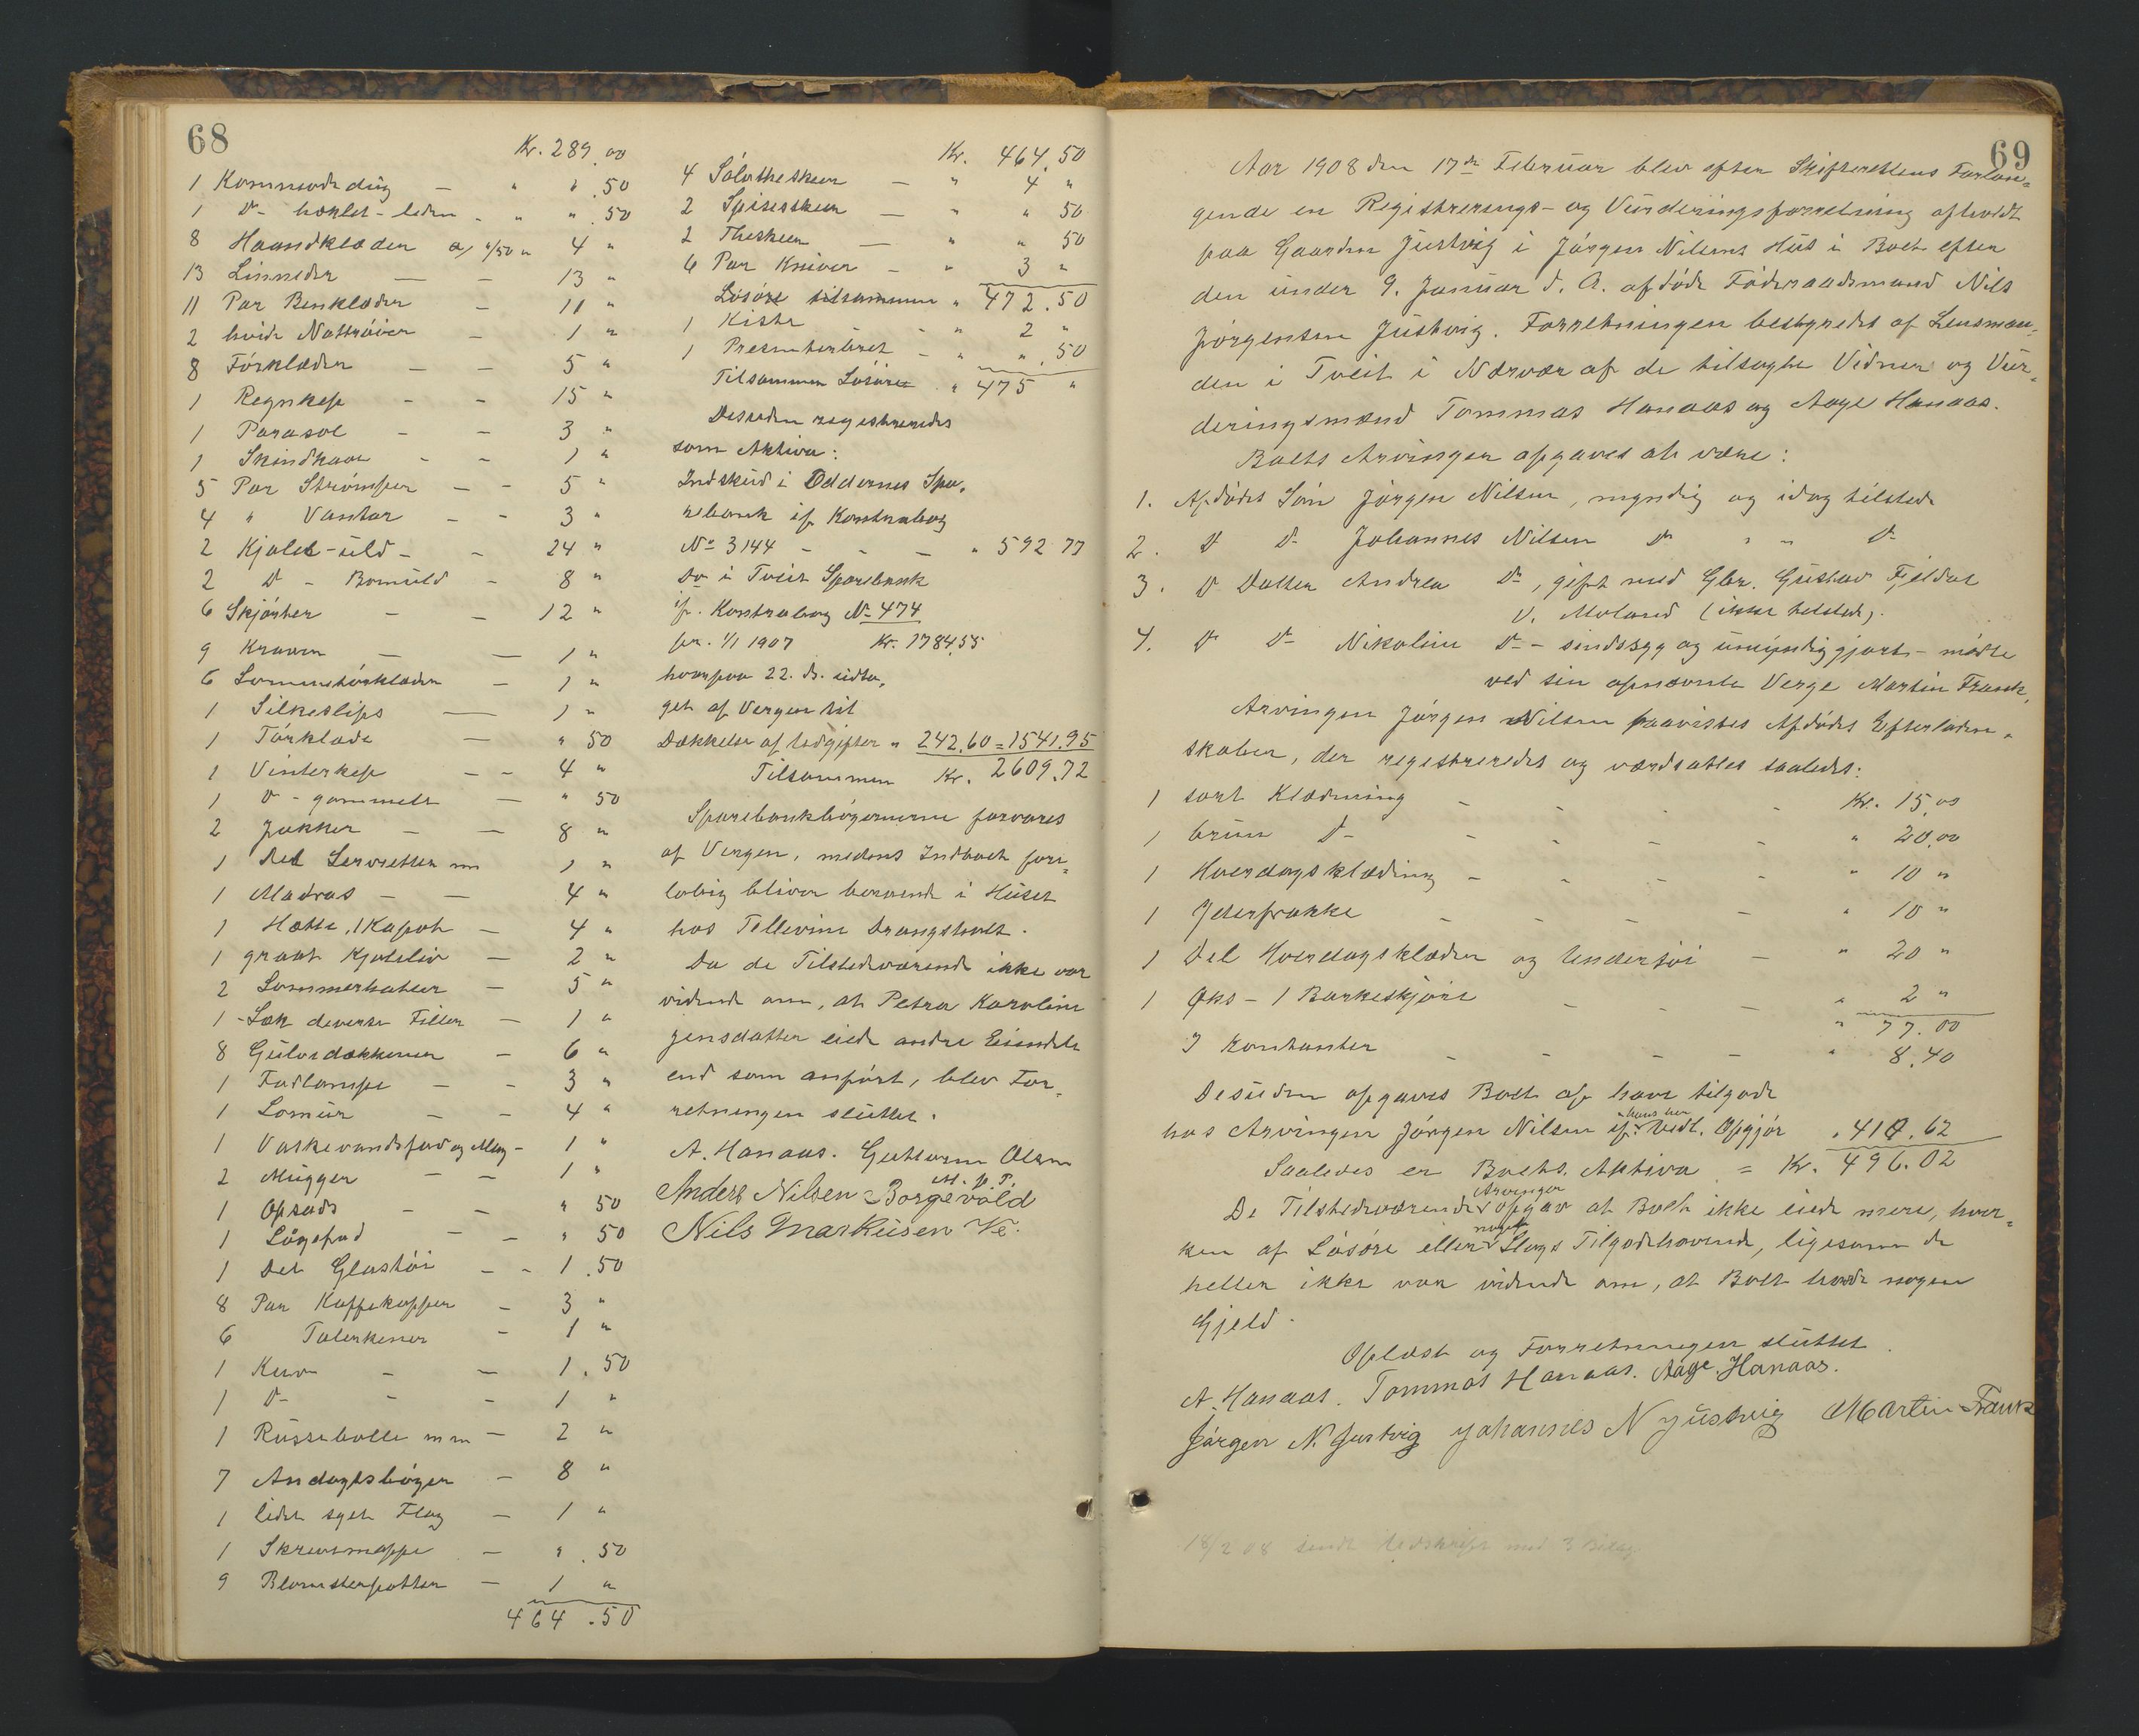 68
Kr. 289.00
1 Kommodedug — " " .50
1 Do hæklet-leden - " " .50
8 Haandklæder a, "/50 " 4 "
13 Linneder — — 13 "
11 Par Benklæder — 11 "
2 hvide Nattrøier — 1 "
8 Forklæder — — 5 "
1 Regnkap - - 15 "
1 Parasol - - 3 "
1 Skindkave - - 1 "
5 Par Strømper — - 5 "
4 " Vanter - - 3 "
2 Kjoler-uld - - 24 "
2 Do - Bomuld - 8 "
6 Skjørter - - 12 "
9 Kraver — — 1 "
6 Lommetørklæder — 1 "
1 Silkeslips — 1 "
1 Tørklæde — " 50
1 Vinterkap - - 4 "
1 Do - gammelt — " 50
2 Jakker - — 8 "
1 Del Servietter mm 1 "
1 Madras — — 4 "
1 Hætte, 1 Kapot - 4 "
1 graat Kjoleliv — 2 "
2 Sommerhatter — 5 "
1 - Sæk diverse Filler — 1 "
8 Gulvdækkener — 6 "
1 Fadlampe — - 3 "
1 Lomur - - 4 "
1 Vaskevandsfad og Mug - 1 "
2 Mugger - - 1 "
1 Opsads - - " 50
1 Løgefad - - " 50
1 Del Glastøi - - 1 .50
8 Par Kaffekopper - 3 "
6 Talerkener - 1 "
1 Kurv - - 1 .50
1 Do - - 1 "
1 Russebolle mm — 2 "
7 Andagtsbøger — 8 "
1 lidet syet Flag — 1 "
1 Skrivemappe — " .50
9 Blomsterpotter — 1 "
464 .50
Kr. 464.50
4 Sølvtheskeer — " 4 "
2 Spiseskeer — " " 50
2 Theskeer — " " 50
6 Par Kniver - " 3 "
Løsøre tilsammen " 472.50
1 Kiste - " 2 "
1 Presenterbret - " " .50
Tilsammen Løsøre " 475 "
Desuden registreredes
som Aktiva:
Indskud i Oddernes Spa,
rebank if Kontrabog
No 3144 - - — " 592 77
Do i Tveit Sparebank
if. Kontrabog No 474
pr. 1/1 1907 Kr. 1784.55
hvorpaa 22. ds. udta,
get af Vergen til
Dækkelse af Udgifter " 242.60 = 1541.95
Tilsammen Kr. 2609.72
Sparebankbøgernerne forvares
af Vergen, medens Indboet fore,
løbig bliver beroende i Huset
hos Tellevine Drangsholt.
Da de Tilstedeværende ikke var
vidende om, at Petra Karoline
Jensdatter eiede andre Eiendele
end som anført, blev For,
retningen sluttet.
A. Hanaas. Guttorm Olsen
M. p. P.
Anders Nilsen Borgevold
Nils Markusen Ve.
69
Aar 1908 den 17de Februar blev efter Skifterettens Forlan,
gende en Registrerings- og Vurderingsforretning afholdt
paa Gaarden Justvig i Jørgen Nilsens Hus i Boet efter
den under 9. Januar d. A. afdøde Føderaadsmand Nils
Jørgensen Justvig. Forretningen bestyredes af Lensman,
den i Tveit i Nærvær af de tilsagte Vidner og Vur,
deringsmænd Tommas Hanaas og Aage Hanaas.
Boets Arvinger opgaves at være:
1. Afdødes Søn Jørgen Nilsen, myndig og idag tilstede
2. Do Do Johannes Nilsen Do " " Do
3. Do Datter Andrea Do, gift med Gbr. Gustav Fjeldal
V. Moland (ikke tilstede).
4. Do Do Nikoline Do - sindssyg og umyndiggjort - mødte
ved sin opnævnte Verge Martin Frank,
Arvingen Jørgen Nilsen paavistes Afdødes Efterladen,
skaber, der registreredes og værdsattes saaledes:
1 sort Klædning - - - - Kr. 15.00
1 brun Do - - - - " 20.00
1 Hverdagsklædning - - - - " 10 "
1 Yterfrakke - - - - " 10 "
1 Del Hverdagsklæder og Undertøi - " 20 "
1 Øks - 1 Barkeskjære - - - " 2 "
" 77.00
I Kontanter - - - - " 8.40
Desuden opgaves Boet af have tilgode
hos Arvingen Jørgen Nilsen if. hans her vedl. Opgjør " 410.62
Saaledes er Boets Aktiva = Kr. 496.02
De Tilstedeværende Arvinger opgav at Boet ikke eiede mere, hver,
ken af Løsøre eller noget Slags Tilgodehavende, ligesom de
heller ikke var vidende om, at Boet havde nogen
Gjeld.
Oplæst og Forretningen sluttet.
A. Hanaas. Tommas Hanaas. Aage Hanaas.
Jørgen N. Justvig Johannes N Justvig Martin Frank
18/2 08 sendt Udskrift med 3 Bilag